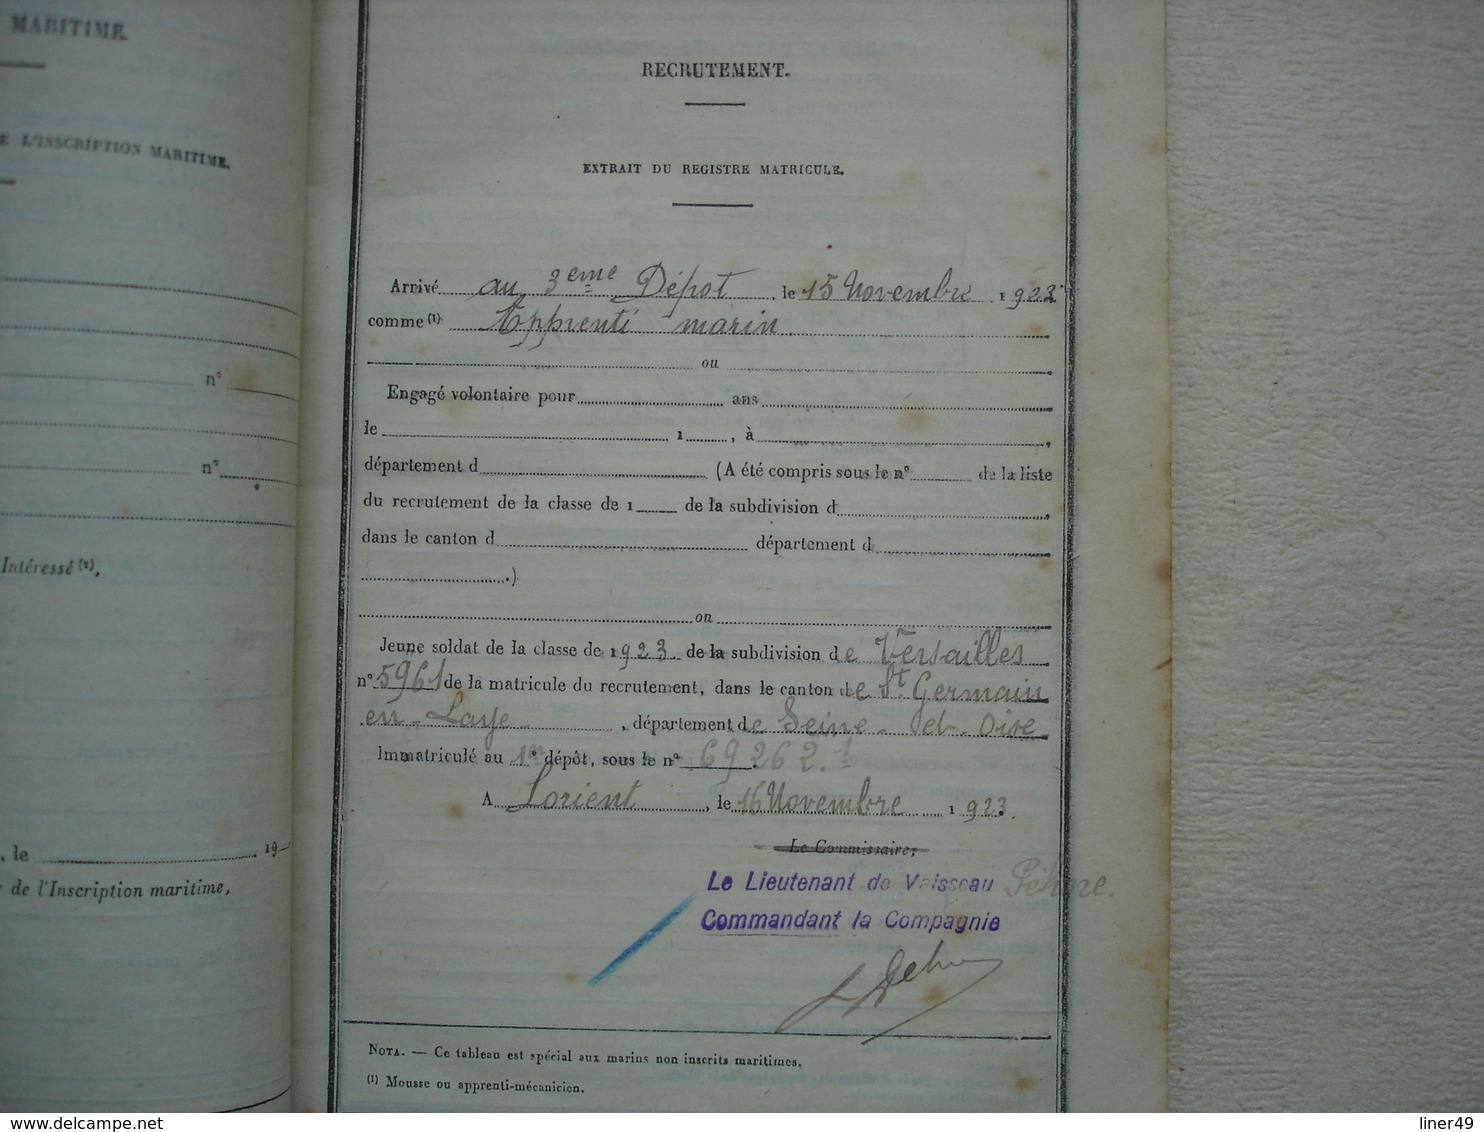 MARITIME.
E L'INSCRIPTION MARITIME.
n°
n°
Intéressé (2),
, le 19
de l'Inscription maritime,
RECRUTEMENT.
EXTRAIT DU REGISTRE MATRICULE.
Arrivé au 3eme Dépot, le 15 Novembre 1923
comme (1) Apprenti marin
ou
Engagé volontaire pour ans
le 1 , à ,
département d (A été compris sous le n° de la liste
du recrutement de la classe de 1 de la subdivision d ,
dans le canton d département d
.)
ou
Jeune soldat de la classe de 1923 de la subdivision de Versailles
n° 5961 de la matricule du recrutement, dans le canton de St Germain
en Laye, département de Seine et Oise
Immatriculé au 1er dépôt, sous le n° 69262.1
A Lorient, le 16 Novembre 1923.
Le Commissaire,
Le Lieutenant de Vaisseau
Commandant la Compagnie
NOTA. — Ce tableau est spécial aux marins non inscrits maritimes.
(1) Mousse ou apprenti-mécanicien.
delcampe.net
liner49